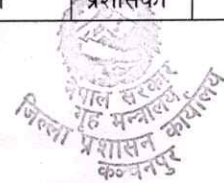 प्रशासकी
नेपाल सरकार
गृह मन्त्रालय
जिल्ला प्रशासन कार्यालय
कञ्चनपुर